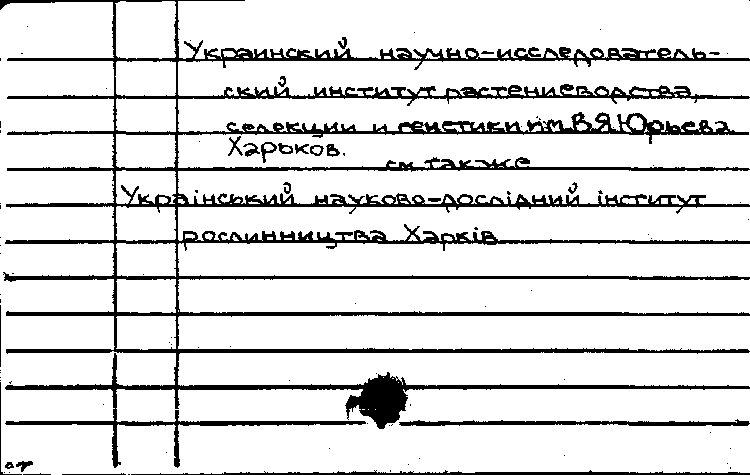 Украинский научно-исследователь-
ский институт растениеводства,
селекции и генетики им. В.Я.Юрьева
Харьков.
см. также
Український науково-дослідний інститут
рослинництва Харків